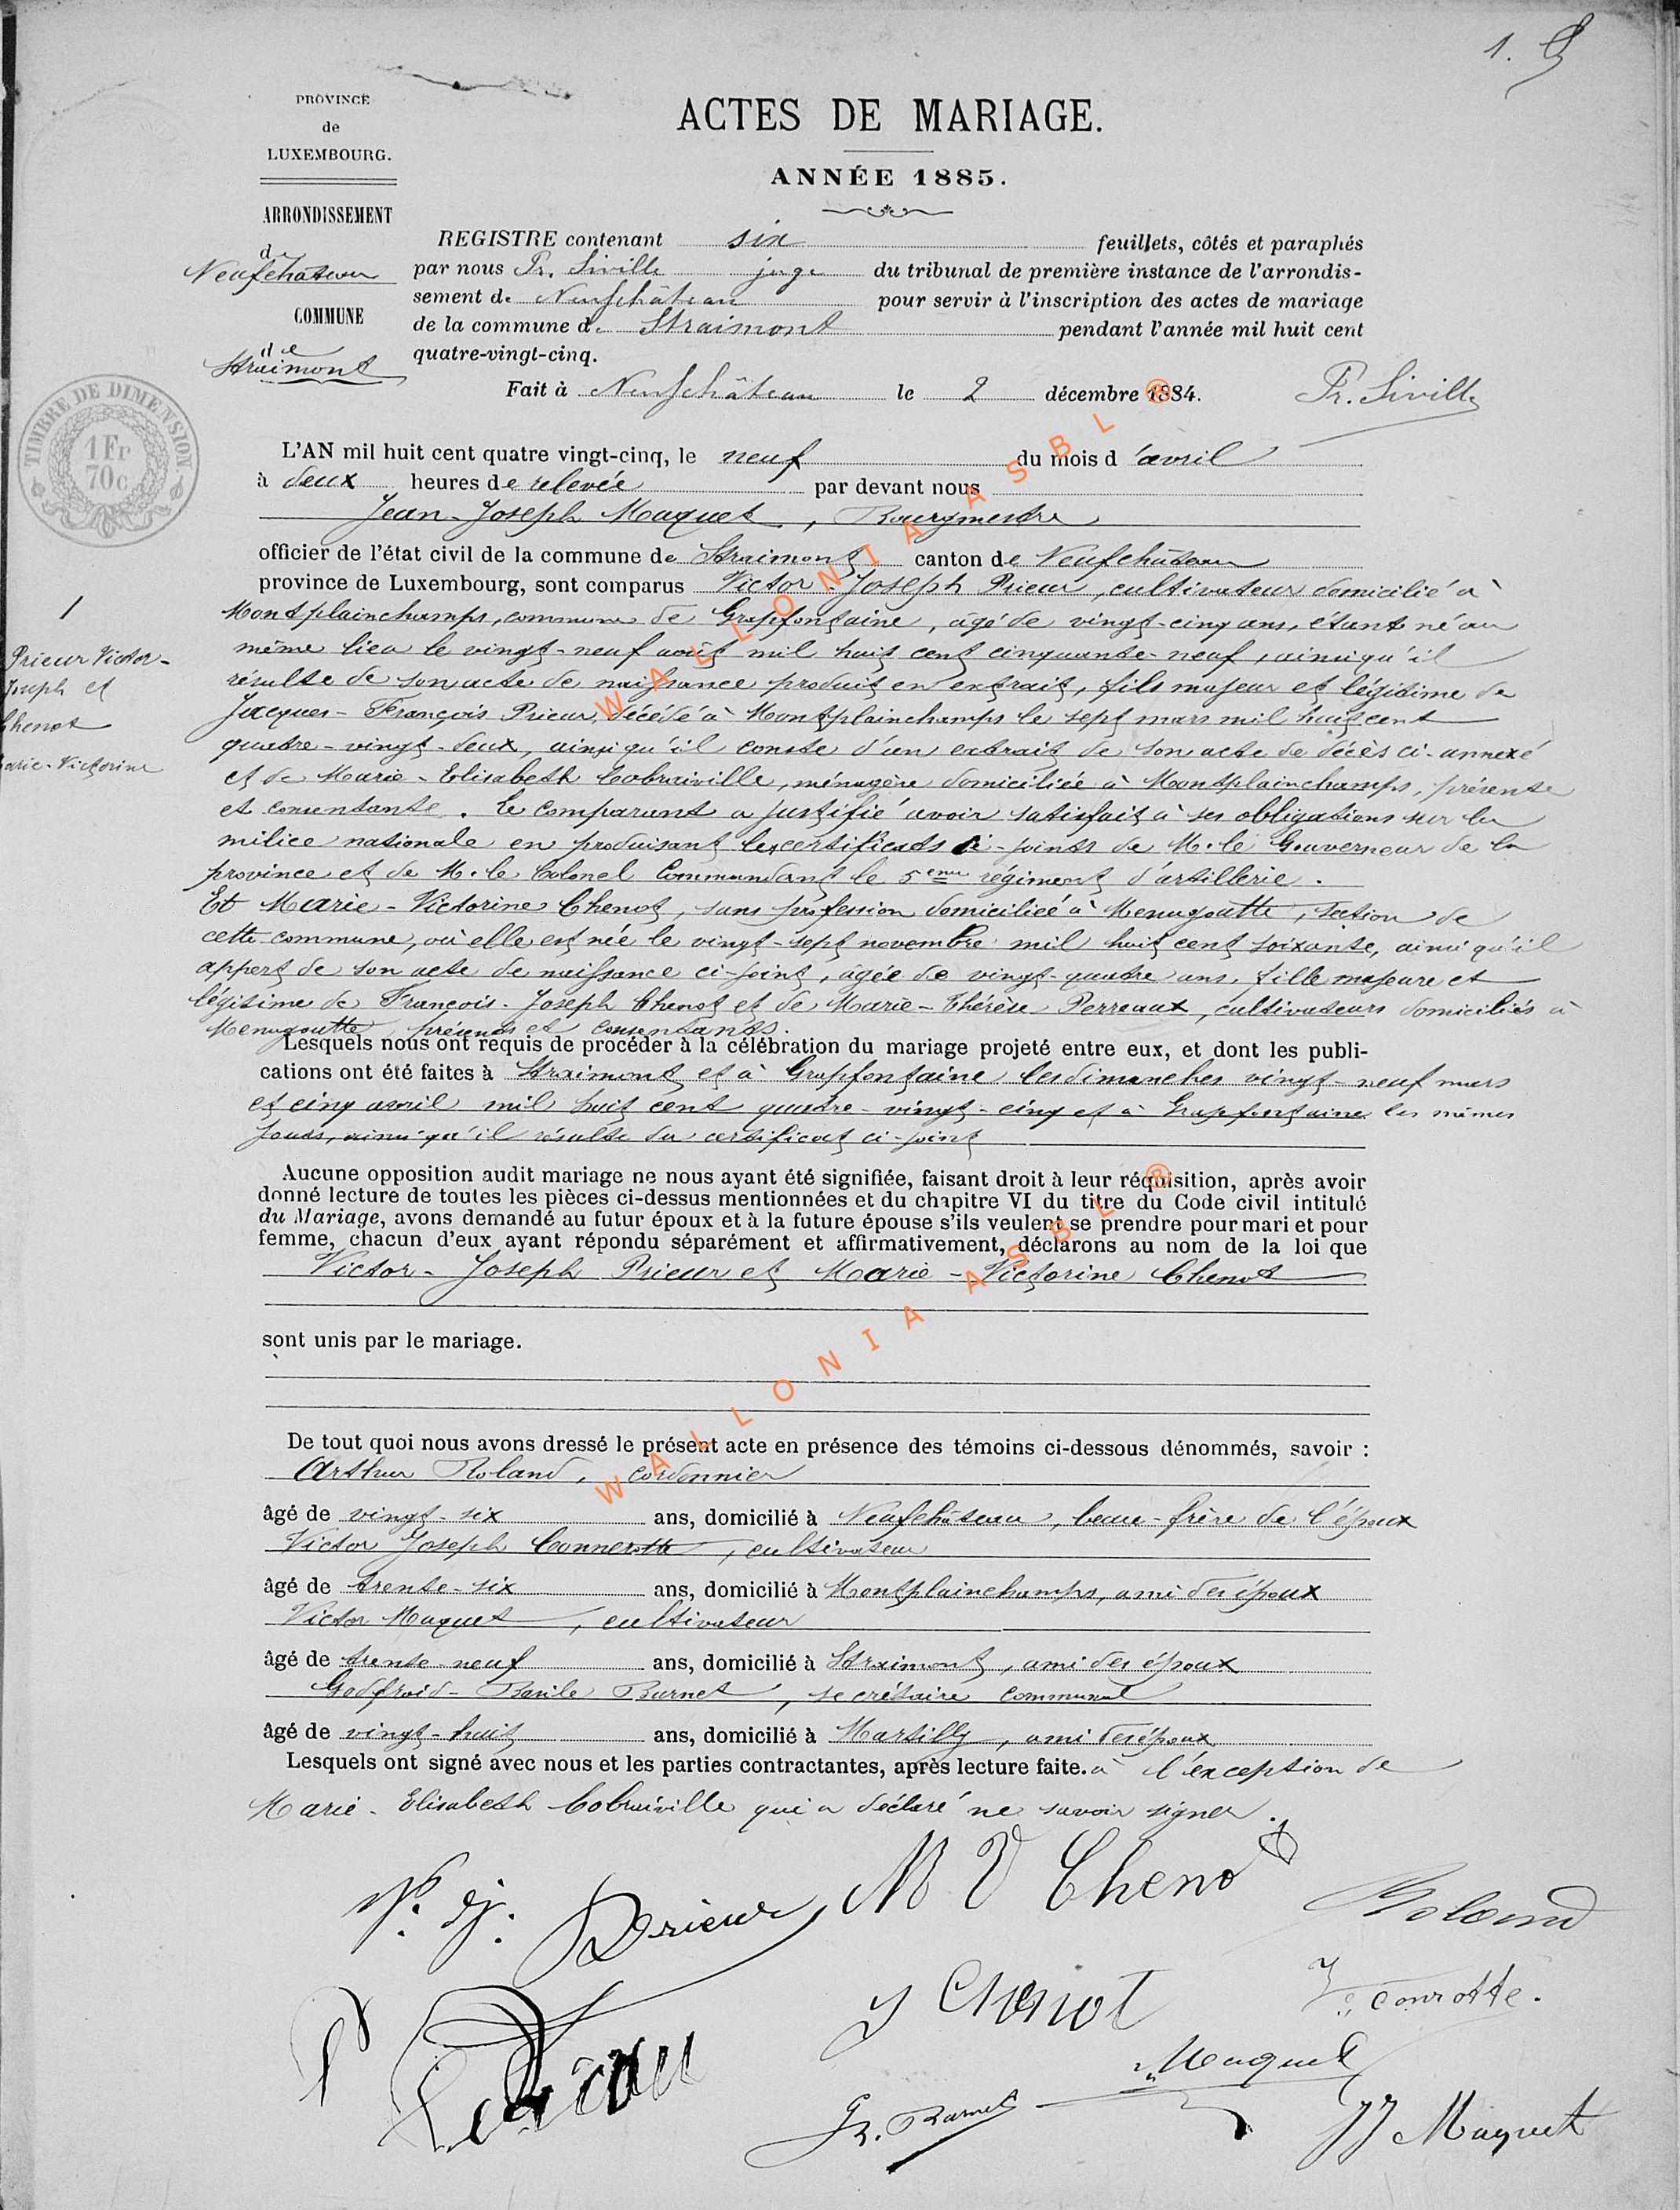 1.
PROVINCE
de
LUXEMBOURG.
ARRONDISSEMENT
de
Neufchâteau
COMMUNE
de
Straimont
TIMBRE DE DIMENSION
1 Fr
70c
ACTES DE MARIAGE.
ANNÉE 1885.
REGISTRE contenant six feuillets, côtés et paraphés
par nous Fr. Siville juge du tribunal de première instance de l'arrondis-
sement de Neufchâteau pour servir à l'inscription des actes de mariage
de la commune de Straimont pendant l'année mil huit cent
quatre-vingt-cinq.
Fait à Neufchâteau le 2 décembre 1884. Fr. Siville
L'AN mil huit cent quatre vingt-cinq, le neuf du mois d'avril
à deux heures de relevée par devant nous
Jean-Joseph Maquet, Bourgmestre
officier de l'état civil de la commune de Straimont canton de Neufchâteau
province de Luxembourg, sont comparus Victor-Joseph Prieur, cultivateur domicilié à
Montplainchamps, commune de Grapfontaine, âgé de vingt-cinq ans, étant né au
même lieu le vingt-neuf août mil huit cent cinquante-neuf, ainsi qu'il
résulte de son acte de naissance produit en extrait, fils majeur et légitime de
Jacques-François Prieur, décédé à Montplainchamps le sept mars mil huit cent
quatre-vingt-deux, ainsi qu'il conste d'un extrait de son acte de décès ci-annexé
et de Marie-Elisabeth Cobraiville, ménagère domiciliée à Montplainchamps, présente
et consentante. Le comparant a justifié avoir satisfait à ses obligations sur la
milice nationale en produisant les certificats ci-joints de M. le Gouverneur de la
province et de M. le Colonel Commandant le 5eme régiment d'artillerie.
Et Marie-Victorine Chenot, sans profession domiciliée à Menugoutte, section de
cette commune, où elle est née le vingt-sept novembre mil huit cent soixante, ainsi qu'il
appert de son acte de naissance ci-joint, âgée de vingt-quatre ans, fille majeure et
légitime de François-Joseph Chenot et de Marie-Thérèse Perreaux, cultivateurs domiciliés à
Menugoutte, présents et consentants.
Lesquels nous ont requis de procéder à la célébration du mariage projeté entre eux, et dont les publi-
cations ont été faites à Straimont et à Grapfontaine les dimanches vingt-neuf mars
et cinq avril mil huit cent quatre-vingt-cinq et à Grapfontaine les mêmes
jours, ainsi qu'il résulte du certificat ci-joint
Aucune opposition audit mariage ne nous ayant été signifiée, faisant droit à leur réquisition, après avoir
donné lecture de toutes les pièces ci-dessus mentionnées et du chapitre VI du titre du Code civil intitulé
du Mariage, avons demandé au futur époux et à la future épouse s'ils veulent se prendre pour mari et pour
femme, chacun d'eux ayant répondu séparément et affirmativement, déclarons au nom de la loi que
Victor-Joseph Prieur et Marie-Victorine Chenot
sont unis par le mariage.
De tout quoi nous avons dressé le présent acte en présence des témoins ci-dessous dénommés, savoir :
Arthur Roland, cordonnier
âgé de vingt-six ans, domicilié à Neufchâteau, beau-frère de l'époux
Victor Joseph Connerotte, cultivateur
âgé de trente-six ans, domicilié à Montplainchamps, ami des époux
Victor Maquet, cultivateur
âgé de trente-neuf ans, domicilié à Straimont, ami des époux
Godfroid-Basile Burnet, secrétaire communal
âgé de vingt-huit ans, domicilié à Martilly, ami des époux
Lesquels ont signé avec nous et les parties contractantes, après lecture faite. à l'exception de
Marie-Elisabeth Cobraiville qui a déclaré ne savoir signer.
V. J. Prieur M V Chenot Roland
J Chenot
Maquet
JJ Maquet
1
Prieur Victor-
Joseph et
Chenot
Marie-Victorine
WALLONIA ASBL ®
WALLONIA ASBL ®